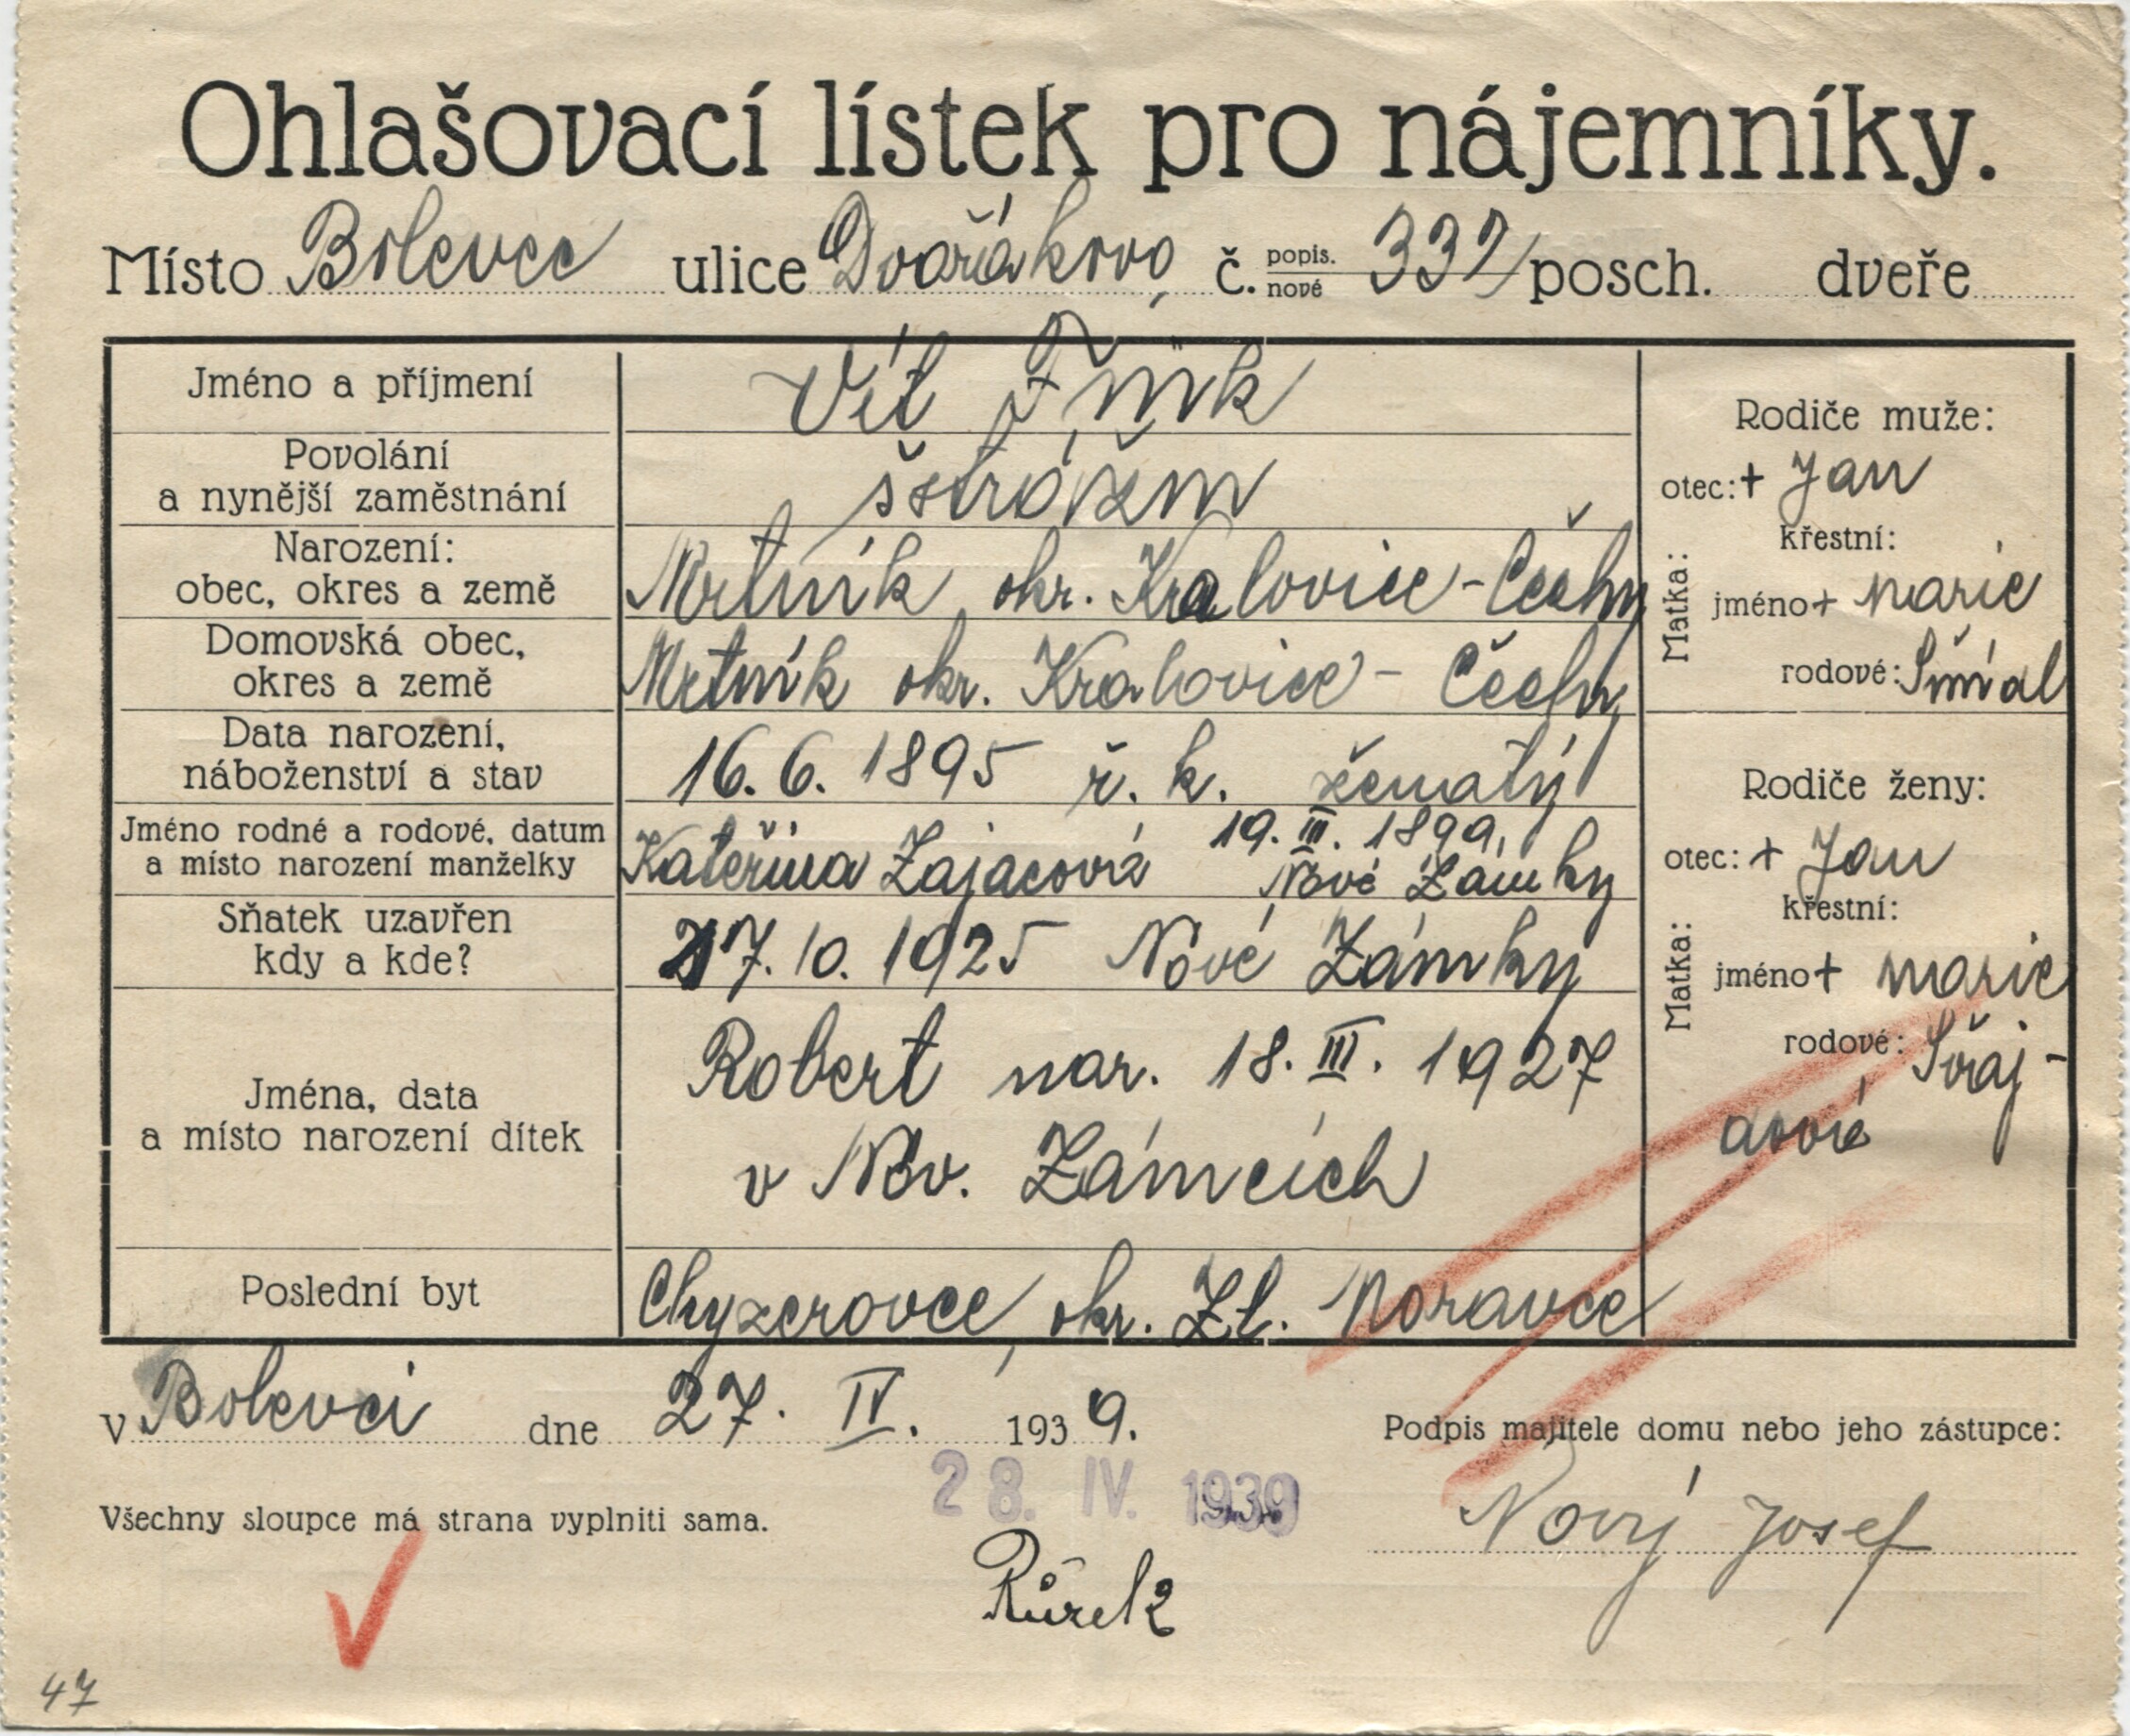 Ohlašovací lístek pro nájemníky.
Místo Bolevec ulice Dvořákova č. popis. nové 337 posch. dveře
Jméno a příjmení Vít
Povolání
a nynější zaměstnání šstrážm
Narození:
obec, okres a země Mrtník okr. Kralovice - Čechy
Domovská obec,
okres a země Mrtník okr. Kralovice - Čechy
Data narození,
náboženství a stav 16. 6. 1895 ř. k. ženatý
Jméno rodné a rodové, datum
a místo narození manželky Kateřina Zajacová 19. III. 1899, Nové Zámky
Sňatek uzavřen
kdy a kde? 17. 10. 1925 Nové Zámky
Jména, data
a místo narození dítek Robert nar. 18. III. 1927
v Nov. Zámcích
Poslední byt Chyzerovce, okr. Zl. Moravce
Rodiče muže:
otec: + Jan
Matka:
křestní:
jméno + Marie
rodové: Šmíd
Rodiče ženy:
otec: + Jan
Matka:
křestní:
jméno + Marie
rodové:
v Bolevci dne 27. IV. 1939.
Podpis majitele domu nebo jeho zástupce:
28. IV. 1939
Všechny sloupce má strana vyplniti sama.
Nový Josef
47